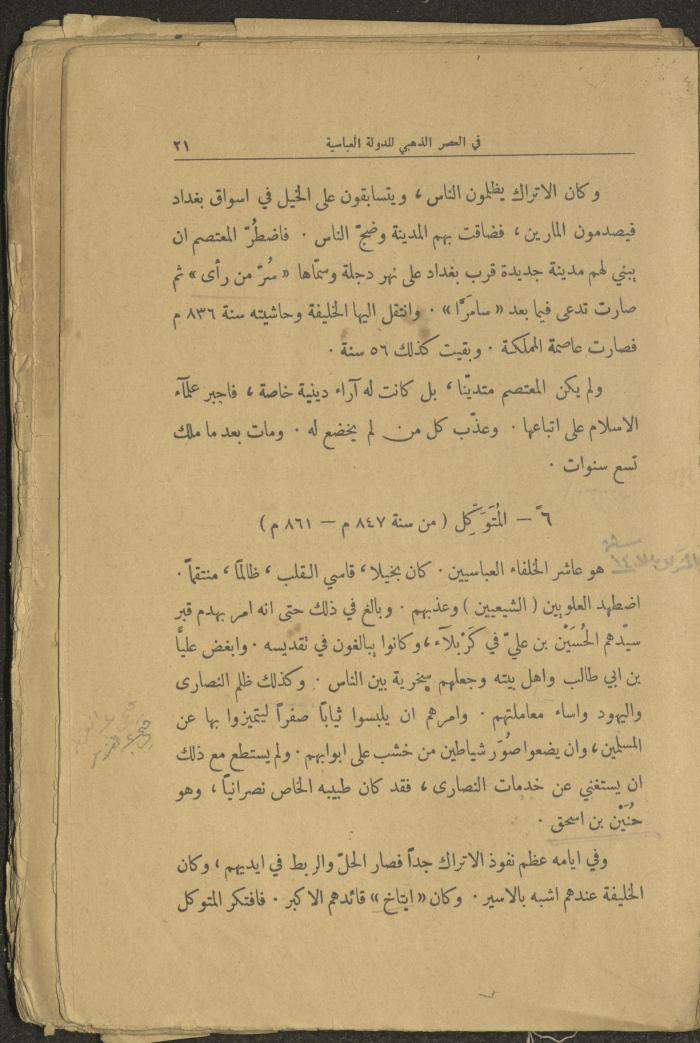 في العصر الذهبي للدولة العباسية ٢١
وكان الاتراك يظلمون الناس ، ويتسابقون على الخيل في اسواق بغداد
فيصدمون المارين ، فضاقت بهم المدينة وضجّ الناس . فاضطُرّ المعتصم ان
يبني لهم مدينة جديدة قرب بغداد على نهر دجلة وسمّاها « سُرّ من رأى » ثم
صارت تدعى فيما بعد « سامَرَّا » . وانتقل اليها الخليفة وحاشيته سنة ٨٣٦ م
فصارت عاصمة المملكة . وبقيت كذلك ٥٦ سنة .
ولم يكن المعتصم متديّنا ، بل كانت له آراء دينية خاصة ، فاجبر علمآء
الاسلام على اتباعها . وعذّب كل من لم يخضع له . ومات بعد ما ملك
تسع سنوات .
٦ً – المُتَوَكِّل ( من سنة ٨٤٧ م – ٨٦١ م )
هو عاشر الخلفاء العباسيين . كان بخيلا ، قاسي القلب ، ظالمًا ، منتقماً .
اضطهد العلويين ( الشيعيين ) وعذبهم . وبالغ في ذلك حتى انه امر بهدم قبر
سيّدهم الحُسَيْن بن عليّ في كَرْبلآء ، وكانوا يبالغون في تقديسه . وابغض عليًّا
بن ابي طالب واهل بيته وجعلهم سخرية بين الناس . وكذلك ظلم النصارى
واليهود واساء معاملتهم . وامرهم ان يلبسوا ثيابًا صفراً ليتميزوا بها عن
المسلمين ، وان يضعوا صُوَر شياطين من خشب على ابوابهم . ولم يستطع مع ذلك
ان يستغني عن خدمات النصارى ، فقد كان طبيبه الخاص نصرانيّاً ، وهو
حُنَيْن بن اسحق .
وفي ايامه عظم نفوذ الاتراك جداً فصار الحلّ والربط في ايديهم ، وكان
الخليفة عندهم اشبه بالاسير . وكان « ايتاخ » قائدهم الاكبر . فافتكر المتوكل